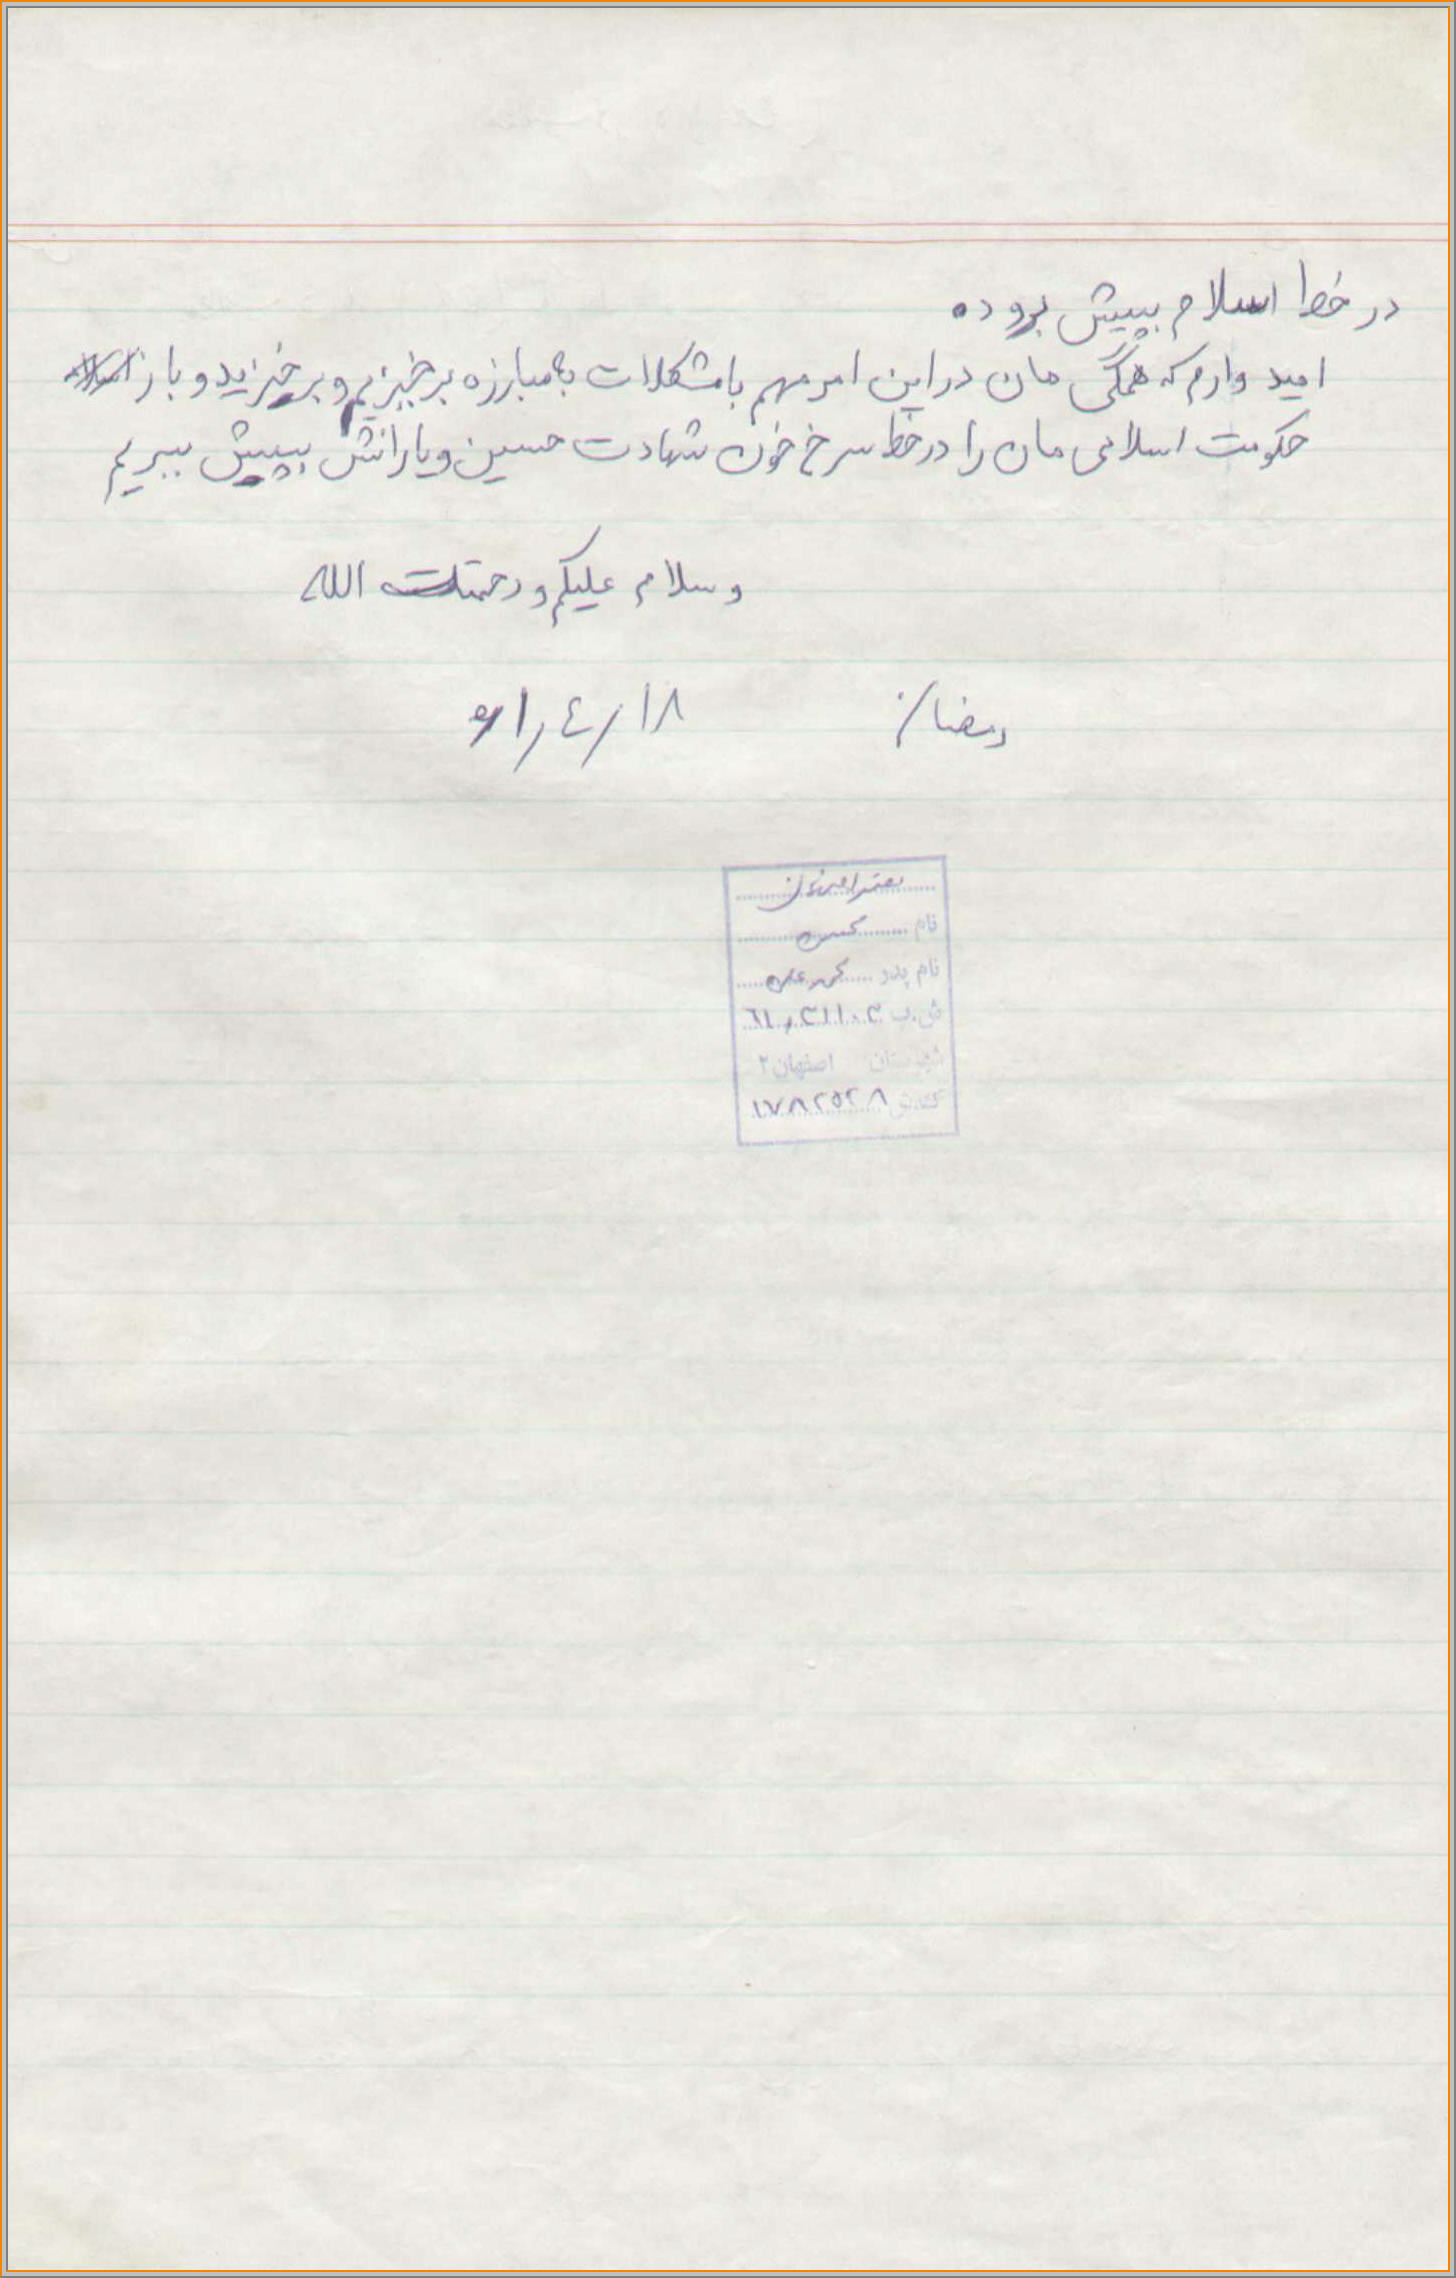 در خط اسلام بپیش بروده
امید وارم که همگی مان در این امر مهم با مشکلات به مبارزه برخیزیم و برخیزید و باز
حکومت اسلامی مان را در خط سرخ خون شهادت حسین و یارانش بپیش ببریم
وسلام علیکم ورحمت الله
رمضان ۶۱/۴/۱۸
نام محسن
نام پدر
ش.ب ۶۱,۲۱۱۰۲
شهرستان اصفهان ۲
کتابش ۱۷۸۲۵۲۸